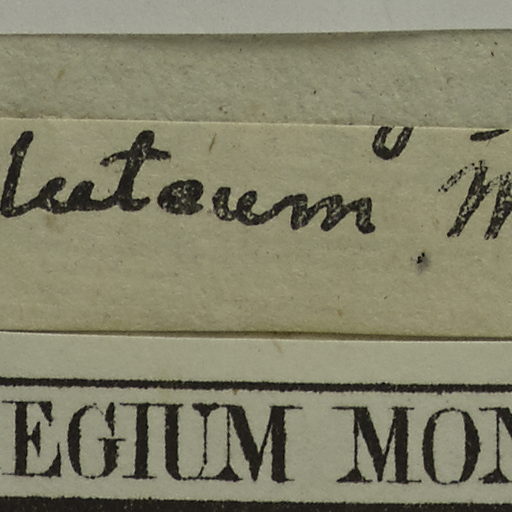 luteum
EGIUM MON